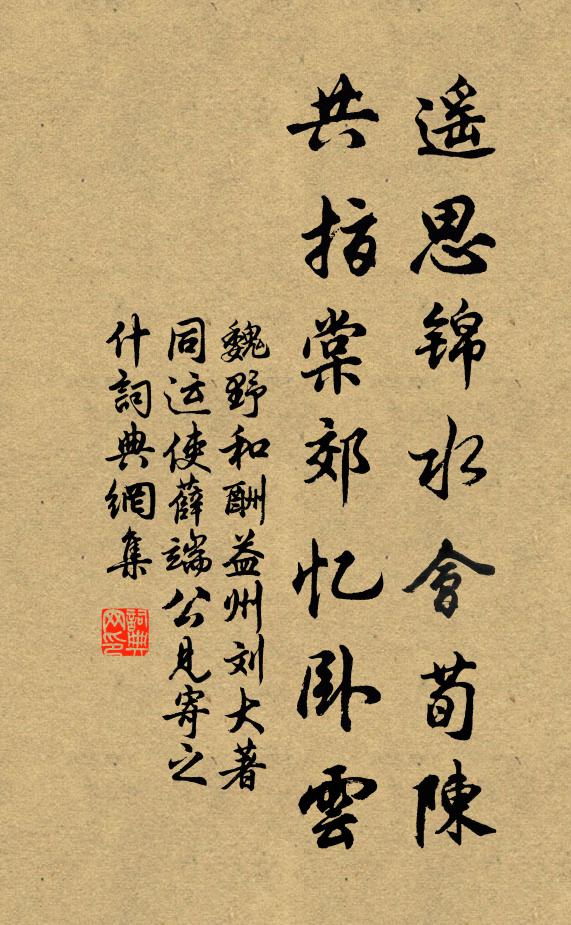 遥思锦水會荀陳
共指棠郊忆卧雲
魏野和酬益州刘大著
同运使薛端公見寄之
什詞典網集
詞典网印